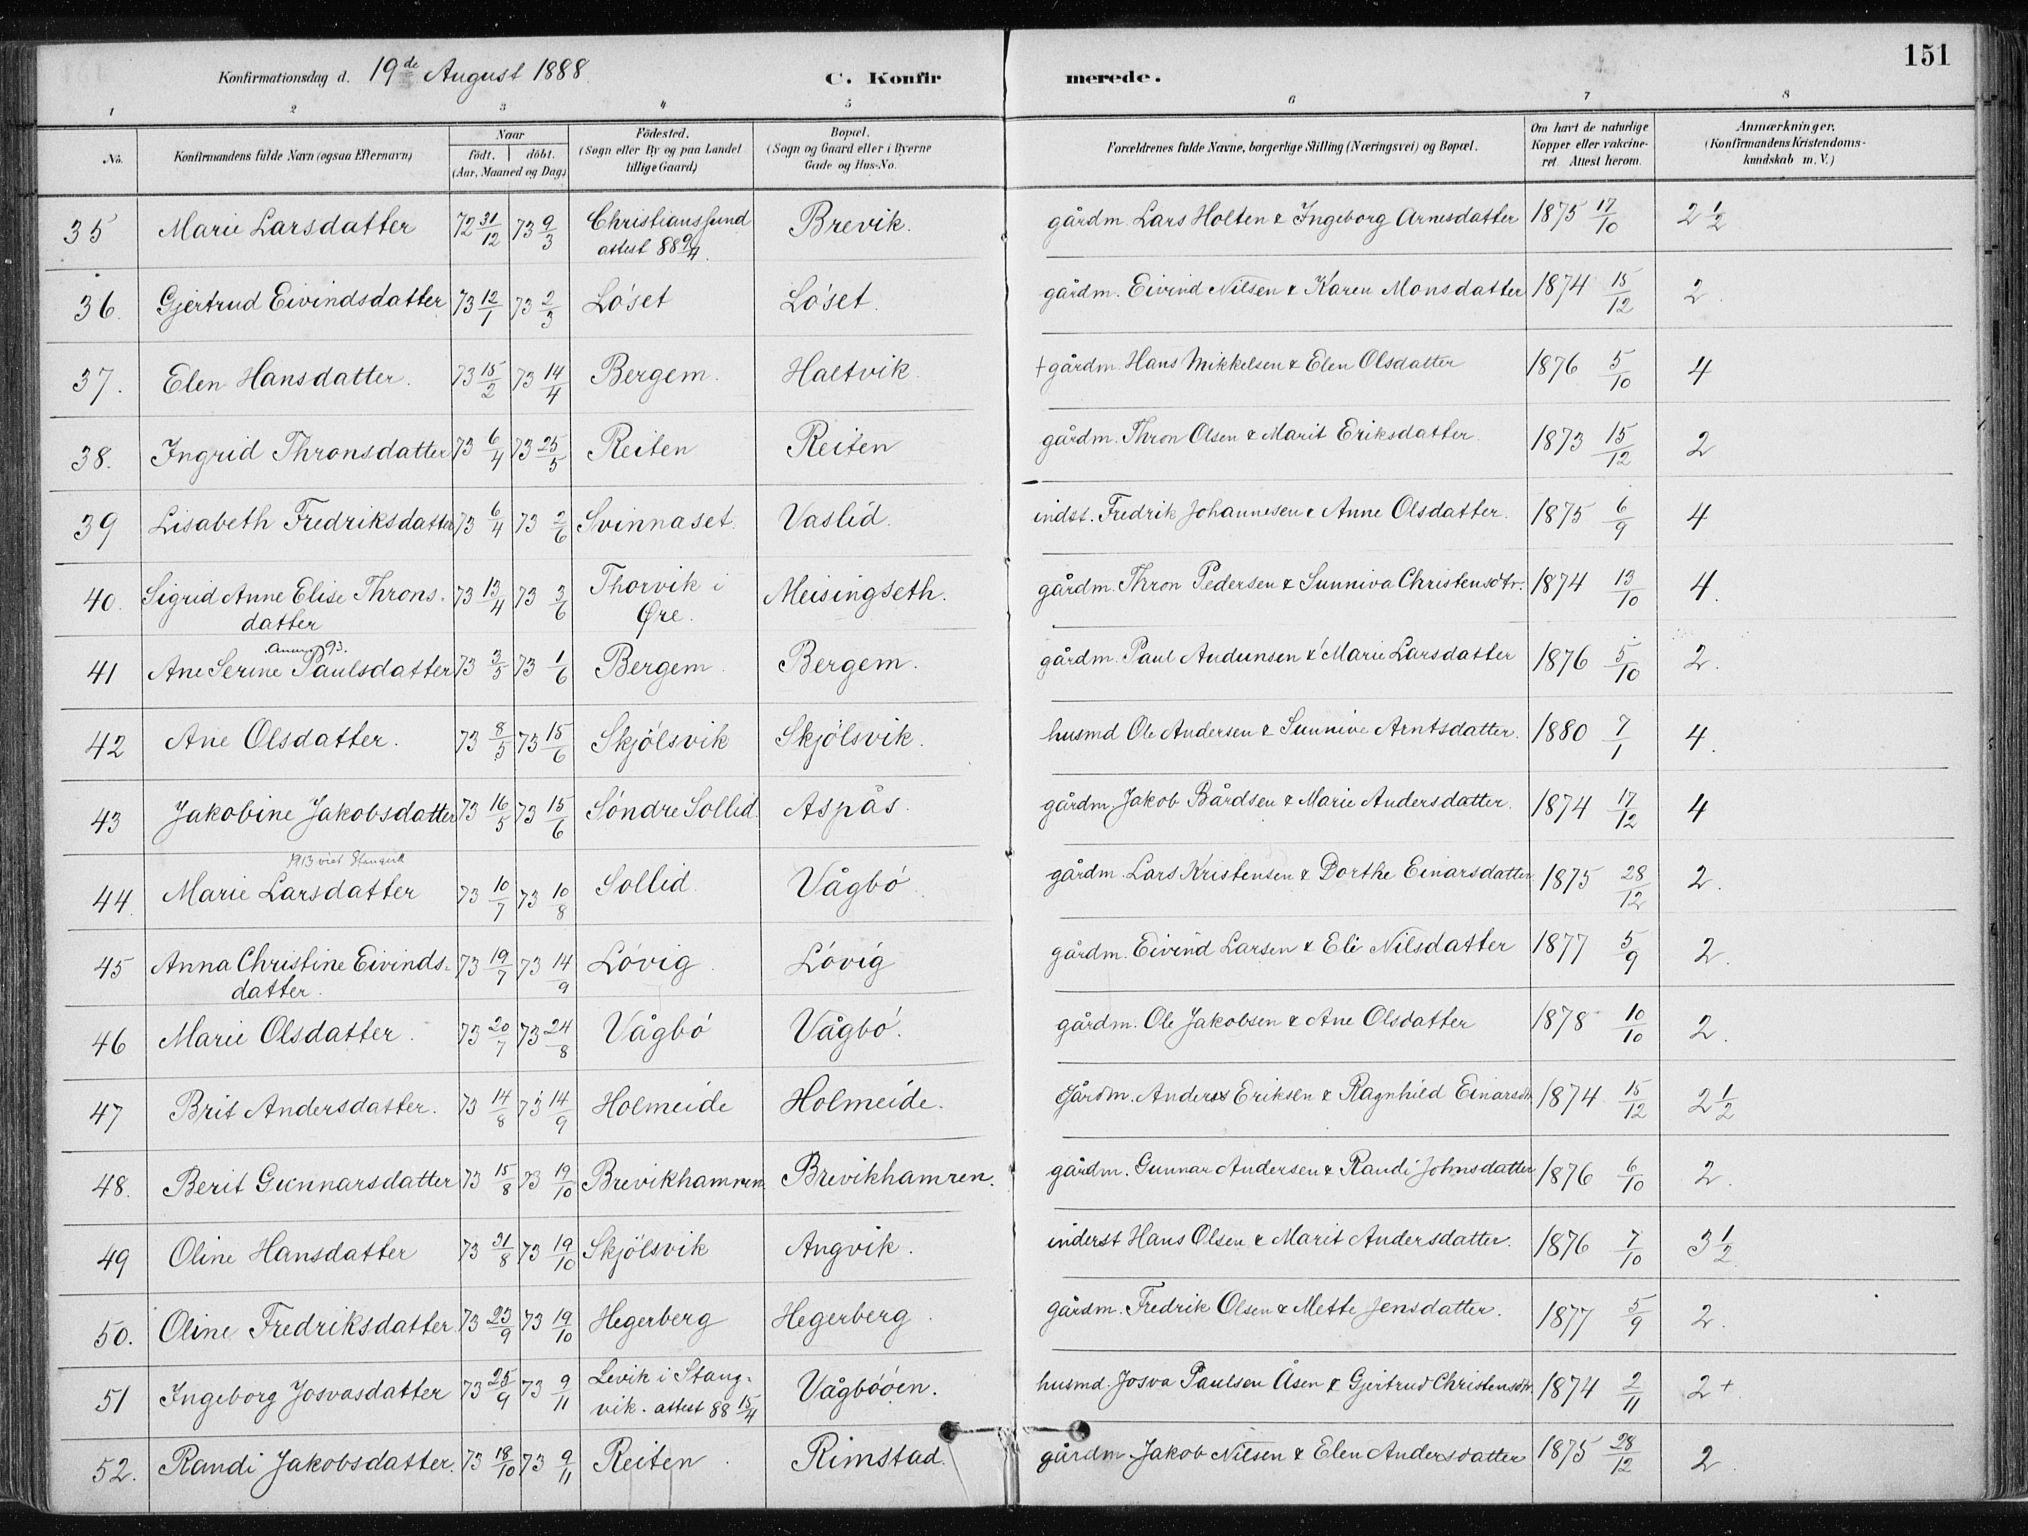 151
Konfirmationsdag d. 19de August 1888. C. Konfirmerede.
1 2 3 4 5 6 7 8
No. Konfirmandens fulde Navn (ogsaa Efternavn) Naar født. døbt. (Aar, Maaned og Dag) Fødested. (Sogn eller By og paa Landet tillige Gaard) Bopæl. (Sogn og Gaard eller i Byerne Gade og Hus-No. Forældrenes fulde Navne, borgerlige Stilling (Næringsvei) og Bopæl. Om havt de naturlige Kopper eller vakcineret. Attest herom. Anmærkninger. (Konfirmandens Kristendomskundskab m. V.)
35 Marie Larsdatter 72 31/12 73 9/3 Christianssund attest 88 9/4. Brevik. gårdm. Lars Holten & Ingeborg Arnesdatter 1875 17/10 2 1/2
36. Gjertrud Eivindsdatter 73 12/1 73 2/3 Löset Löset. gårdm. Eivind Nilsen & Karen Monsdatter 1874 15/12 2.
37. Elen Hansdatter. 73 15/2 73 14/4 Bergem. Haltvik. + gårdm. Hans Mikkelsen & Elen Olsdatter 1876 5/10 4
38. Ingrid Thronsdatter 73 6/4 73 25/5 Reiten Reiten gårdm. Thron Olsen & Marit Eriksdatter. 1873 15/12 2
39 Lisabeth Fredriksdatter 73 6/4 73 2/6 Svinnaset. Vaslid. indst. Fredrik Johannesen & Anne Olsdatter. 1875 6/9 4
40. Sigrid Anne Elise Throns-datter 73 13/4 73 3/6 Thorvik i Øre. Meisingseth. gårdm. Thron Pedersen & Sunniva Christensdtr. 1874 13/10 4.
93.
41 Ane Serine Paulsdatter 73 3/5 73 1/6 Bergem. Bergem. gårdm. Paul Audunsen & Marie Larsdatter 1876 5/10 2.
42 Ane Olsdatter. 73 8/5 73 15/6 Skjölsvik Skjölsvik. husmd Ole Andersen & Sunnive Arntsdatter. 1880 7/1 4.
43 Jakobine Jakobsdatter 73 16/5 73 15/6 Söndre Sollid. Aspås. gårdm. Jakob Bårdsen & Marie Andersdatter. 1874 17/12 4
1913 viet Stangvik
44. Marie Larsdatter 73 10/7 73 10/8 Sollid. Vågbö. gårdm. Lars Kristensen & Dorthe Einarsdatter 1875 28/12 2.
45 Anna Christine Eivinds-datter. 73 19/7 73 14/9 Lövig. Lövig gårdm. Eivind Larsen & Eli Nilsdatter 1877 5/9 2.
46 Marie Olsdatter. 73 20/7 73 24/8 Vågbö Vågbö. gårdm. Ole Jakobsen & Ane Olsdatter 1878 10/10 2.
47 Brit Andersdatter. 73 14/8 73 14/9 Holmeide Holmeide. Gårdm. Anders Eriksen & Ragnhild Einarsdtr. 1874 15/12 2 1/2
48. Berit Gunnarsdatter 73 15/8 73 19/10 Brevikhamren. Brevikhamren. gårdm. Gunnar Andersen & Randi Johnsdatter 1876 6/10 2.
49 Oline Hansdatter 73 31/8 73 19/10 Skjölsvik Angvik. inderst Hans Olsen & Marit Andersdatter. 1876 7/10 3 1/2
50. Oline Fredriksdatter 73 23/9 73 19/10 Hegerberg Hegerberg. gårdm. Fredrik Olsen & Mette Jensdatter. 1877 5/9 2.
51 Ingeborg Josvasdatter 73 25/9 73 9/11 Levik i Stang-vik. attest 88 15/4 Vågbööen. husmd. Josva Paulsen Åsen & Gjertrud Christensdtr. 1874 2/11 2+
52. Randi Jakobsdatter. 73 18/10 73 9/11 Reiten. Rimstad. gårdm. Jakob Nilsen & Elen Andersdatter 1875 28/12 2.